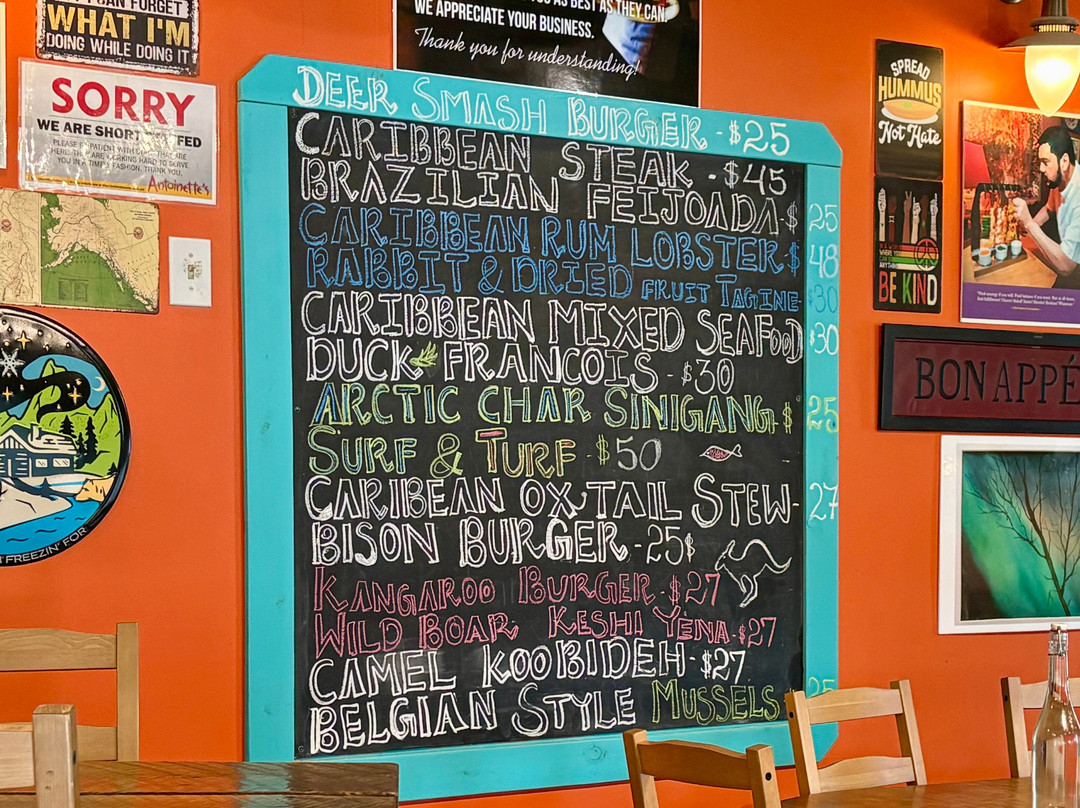 I CAN FORGET
WHAT I'M
DOING WHILE DOING IT
SORRY
WE ARE SHORT
FED
HERE THAT ARE WORKING HARD TO SERVE
YOU IN A TIMELY FASHION. THANK YOU.
Antoinette's
FREEZIN' FOR
YOU AS BEST AS THEY CAN
WE APPRECIATE YOUR BUSINESS.
Thank you for understanding!
DEER SMASH BURGER - $25
CARIBBEAN STEAK - $45
BRAZILIAN FEIJOADA - $25
CARIBBEAN RUM LOBSTER - $48
RABBIT & DRIED FRUIT TAGINE - $30
CARIBBEAN MIXED SEAFOOD $30
DUCK FRANCOIS - $30
ARCTIC CHAR SINIGANG - $25
SURF & TURF - $50
CARIBEAN OXTAIL STEW - 27
BISON BURGER - 25$
KANGAROO BURGER - $27
WILD BOAR KESHI YENA - $27
CAMEL KOOBIDEH - $27
BELGIAN STYLE MUSSELS 25
SPREAD
HUMMUS
Not Hate
BE KIND
BON APPÉ